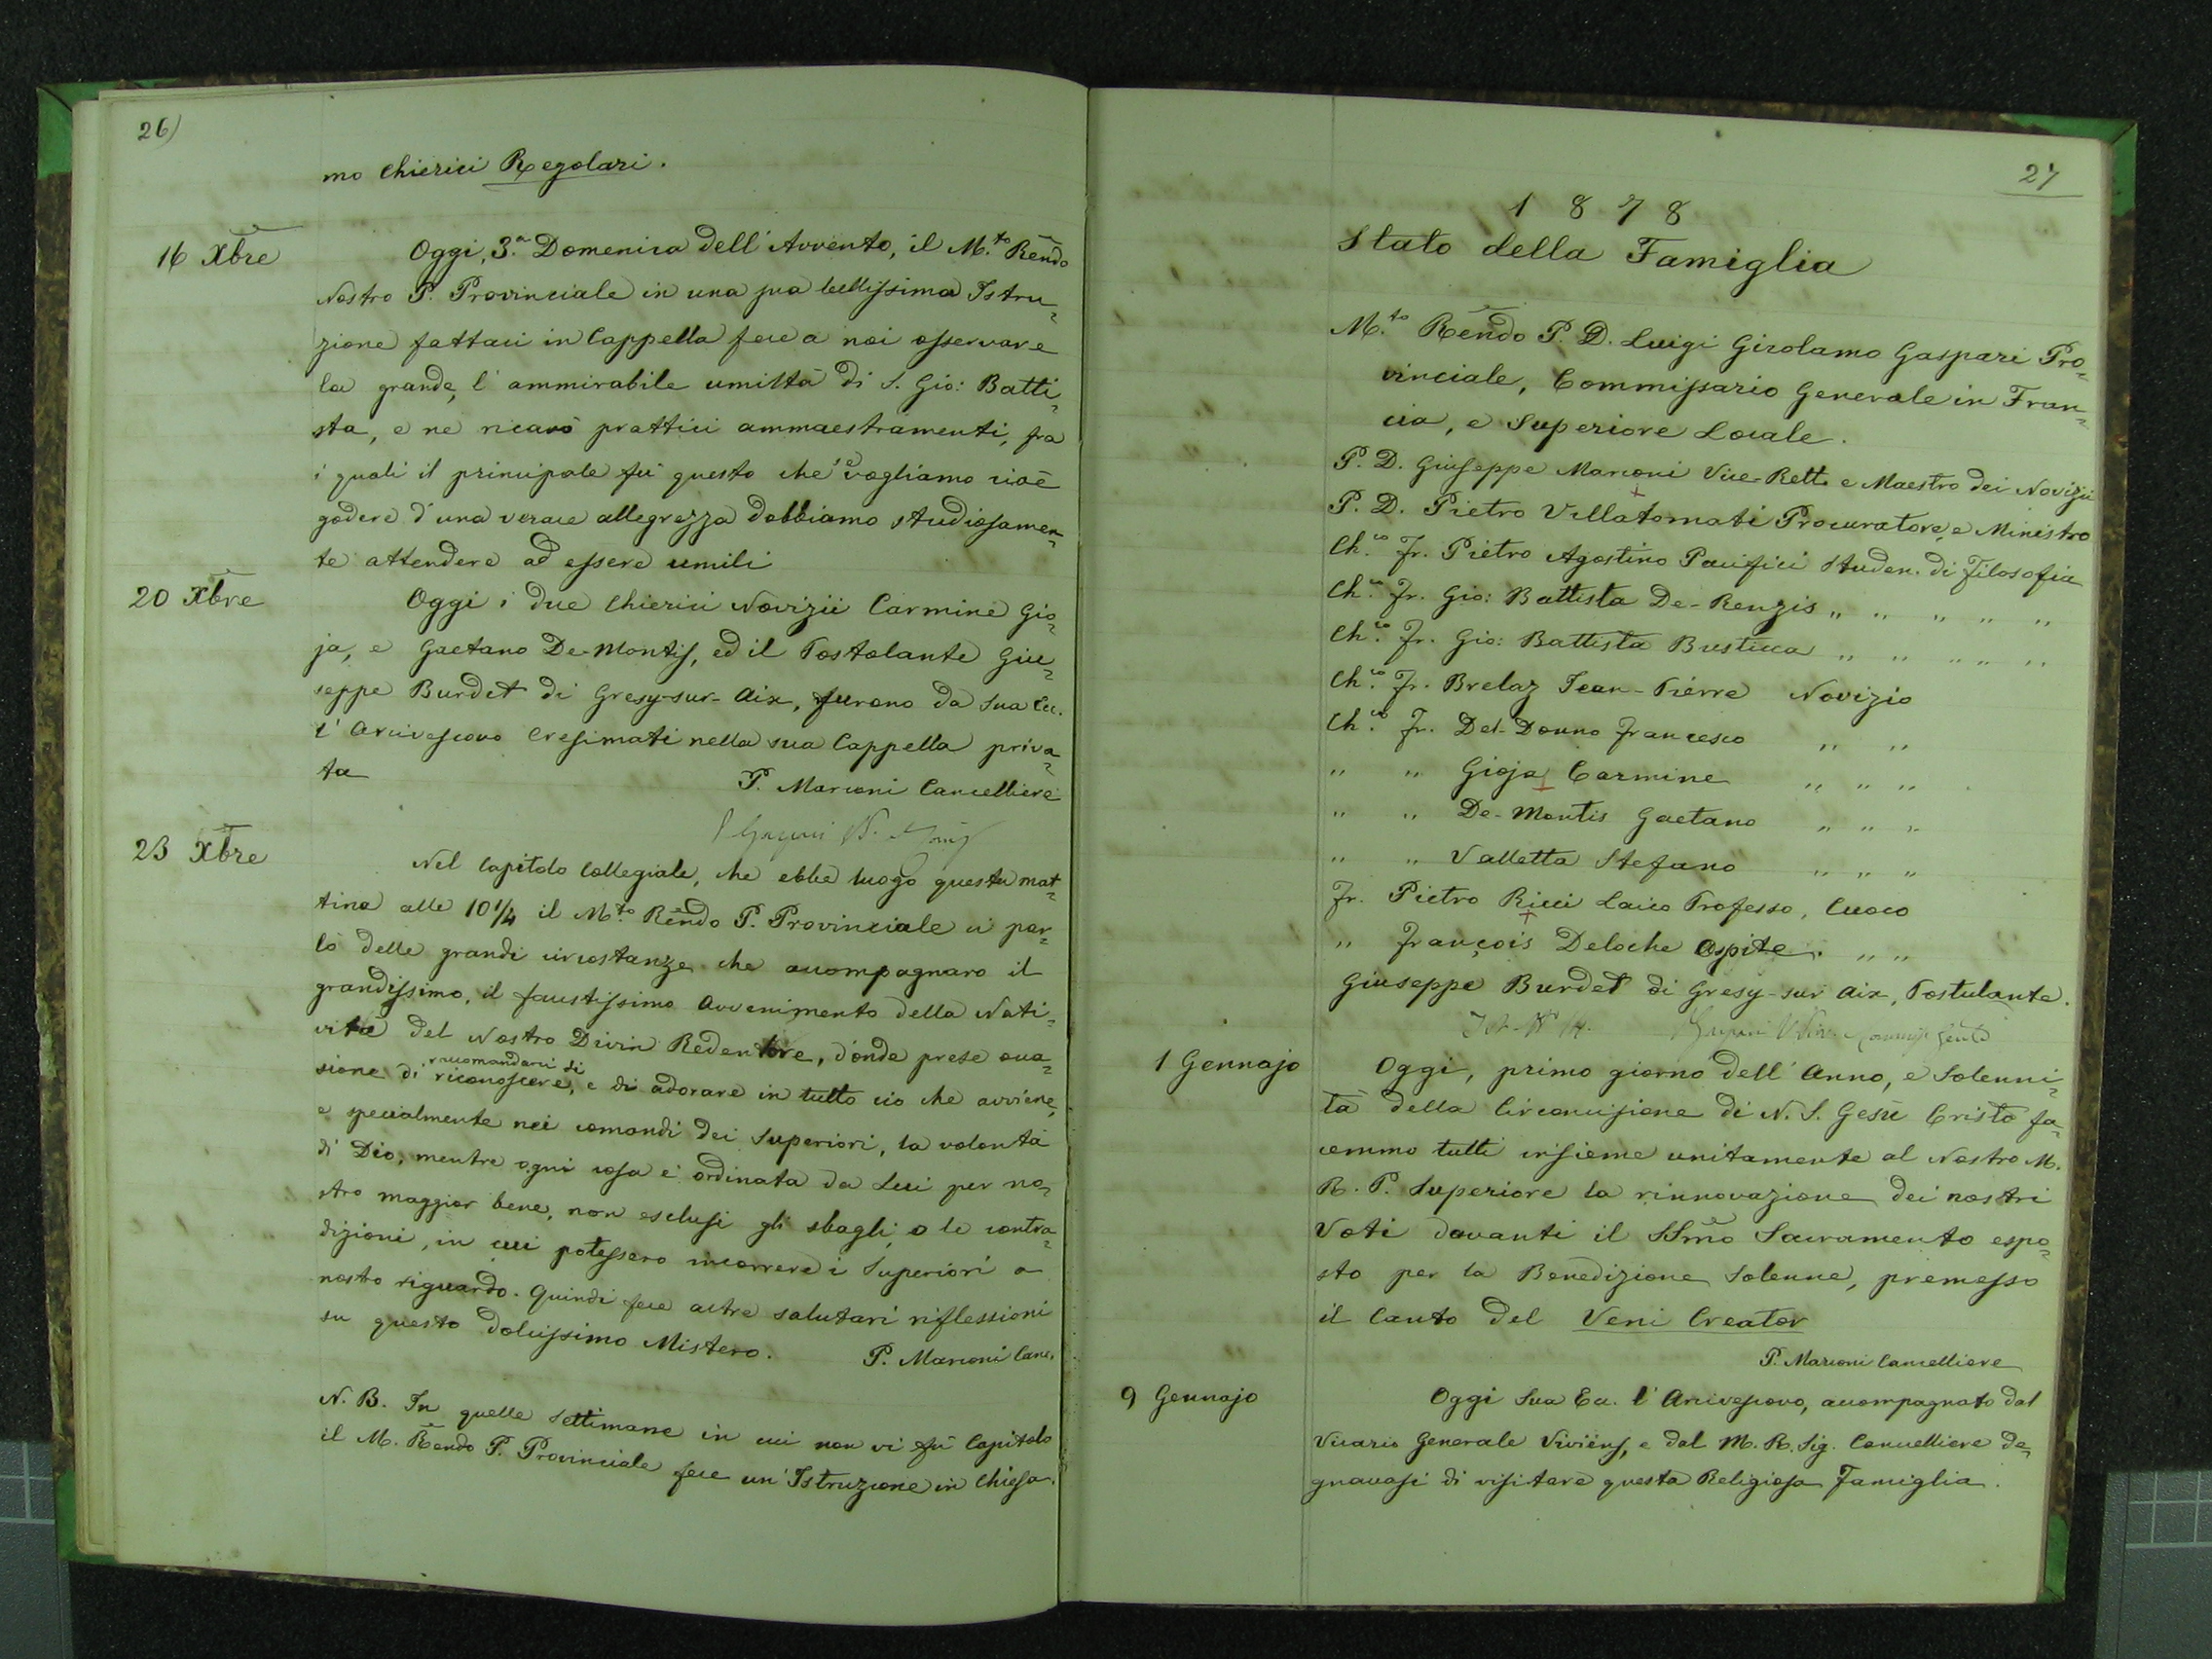 26)
mo Chierici Regolari.
16 Xbre
Oggi, 3.a Domenica dell'Avvento, il M.to Rendo
Nostro P. Provinciale in una sua bellissima Istru-
zione fattaci in Cappella fece a noi osservare
la grande, l'ammirabile umiltà di S. Gio: Batti-
sta, e ne ricavò prattici ammaestramenti, fra
i quali il principale fù questo che se vogliamo cioè
godere d'una verace allegrezza dobbiamo studiosamen-
te attendere ad essere umili
20 Xbre
Oggi i due Chierici Novizii Carmine Gio-
ja, e Gaetano De-Montis, ed il Postolante Giu-
seppe Burdet di Gresy-sur-Aix, furono da Sua Ecc.
l'Arcivescovo Cresimati nella sua Cappella priva-
ta
P. Marconi Cancelliere
23 Xbre
Nel Capitolo Collegiale, che ebbe luogo questa mat-
tina alle 10 1/4 il M.to Rendo P. Provinciale ci par-
lò delle grandi circostanze che accompagnaro il
grandissimo, il faustissimo Avvenimento della Nati-
vità del Nostro Divin Redentore, donde prese occa-
sione di raccomandarci di riconoscere, e di adorare in tutto ciò che avviene,
e specialmente nei comandi dei Superiori, la volontà
di Dio, mentre ogni cosa è ordinata da Lui per no-
stro maggior bene, non esclusi gli sbagli, o le contra-
dizioni, in cui potessero incorrere i Superiori a
nostro riguardo. Quindi fece altre salutari riflessioni
su questo dolcissimo Mistero.
P. Marconi Canc.
N. B. In quelle Settimane in cui non vi fù Capitolo
il M. Rendo P. Provinciale fece un'Istruzione in Chiesa.
27
1878
Stato della Famiglia
M.to Rendo P. D. Luigi Girolamo Gaspari Pro-
vinciale, Commissario Generale in Fran-
cia, e Superiore Locale.
P. D. Giuseppe Marconi Vice-Rett. e Maestro dei Novizii
P. D. Pietro Villatomati Procuratore, e Ministro
Ch.co Fr. Pietro Agostino Pacifici Studen. di Filosofia
Ch.co Fr. Gio: Battista De-Renzis " " " " "
Ch.co Fr. Gio: Battista Busticca " " " " "
Ch.co Fr. Brelaz Jean-Pierre Novizio
Ch.co Fr. Del-Donno Francesco " "
" " Gioja Carmine " " "
" " De-Montis Gaetano " " "
" " Valletta Stefano " " "
Fr. Pietro Ricci Laico Professo, Cuoco
" François Deloche Ospite. " "
Giuseppe Burdet di Gresy-sur Aix, Postulante.
1 Gennajo
Oggi, primo giorno dell'Anno, e Solenni-
tà della Circoncisione di N. S. Gesù Cristo fa-
cemmo tutti insieme unitamente al Nostro M.
R. P. Superiore la rinnovazione dei nostri
Voti davanti il SSmo Sacramento espo-
sto per la Benedizione Solenne, premesso
il Canto del Veni Creator
P. Marconi Cancelliere
9 Gennajo
Oggi Sua Ecc. l'Arcivescovo, accompagnato dal
Vicario Generale Viviens, e dal M. R. Sig. Cancelliere de-
gnavasi di visitare questa Religiosa Famiglia.